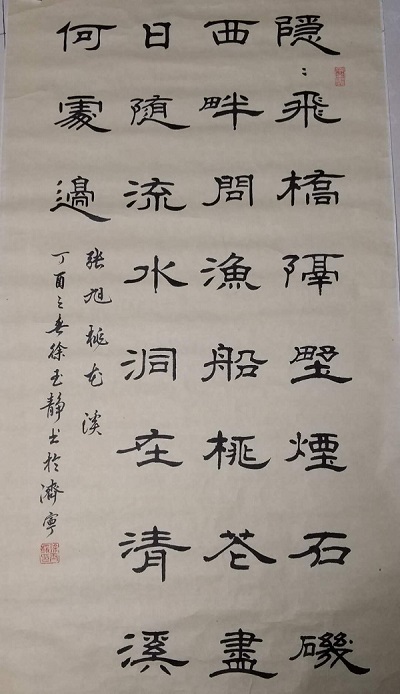 隱〻飛橋隔壄煙石磯
西畔問漁船桃花盡
日隨流水洞在清溪
何處邊
张旭桃花溪
丁酉之春徐玉静书於濟寧